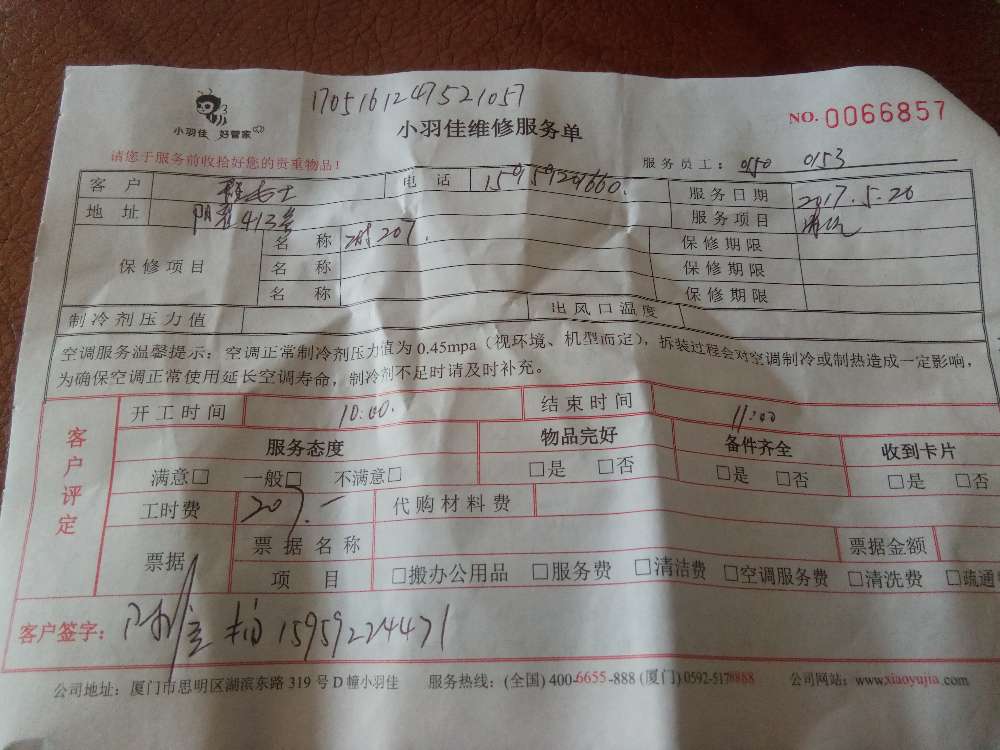 1705161247521057
小羽佳 好管家
小羽佳维修服务单
NO. 0066857
请您于服务前收拾好您的贵重物品！
服务员工： 0150 0153
客 户 电 话 服务日期 2017.5.20
地 址 413号 服务项目
保修项目 名 称 保修期限
名 称 保修期限
名 称 保修期限
制冷剂压力值 出风口温度
空调服务温馨提示：空调正常制冷剂压力值为 0.45mpa（视环境、机型而定），拆装过程会对空调制冷或制热造成一定影响，
为确保空调正常使用延长空调寿命，制冷剂不足时请及时补充。
客户评定
开工时间 10:00. 结束时间 11:00
服务态度 物品完好 备件齐全 收到卡片
满意□ 一般□ 不满意□ □是 □否 □是 □否 □是 □否
工时费 207.- 代购材料费
票据 票据名称 票据金额
项 目 □搬办公用品 □服务费 □清洁费 □空调服务费 □清洗费 □疏通
客户签字： 15959224471
公司地址：厦门市思明区湖滨东路 319 号 D 幢小羽佳 服务热线：(全国) 400-6655-888 (厦门) 0592-5178888 公司网站：www.xiaoyujia.com